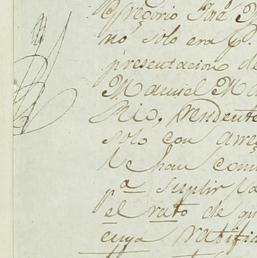 Gregorio José M
no, solo era C.
presentacion de
Manuel Ma
Rio. Vendente
solo con arre
se han com
pa. suplir la
el rato de qu
cuya ratifica